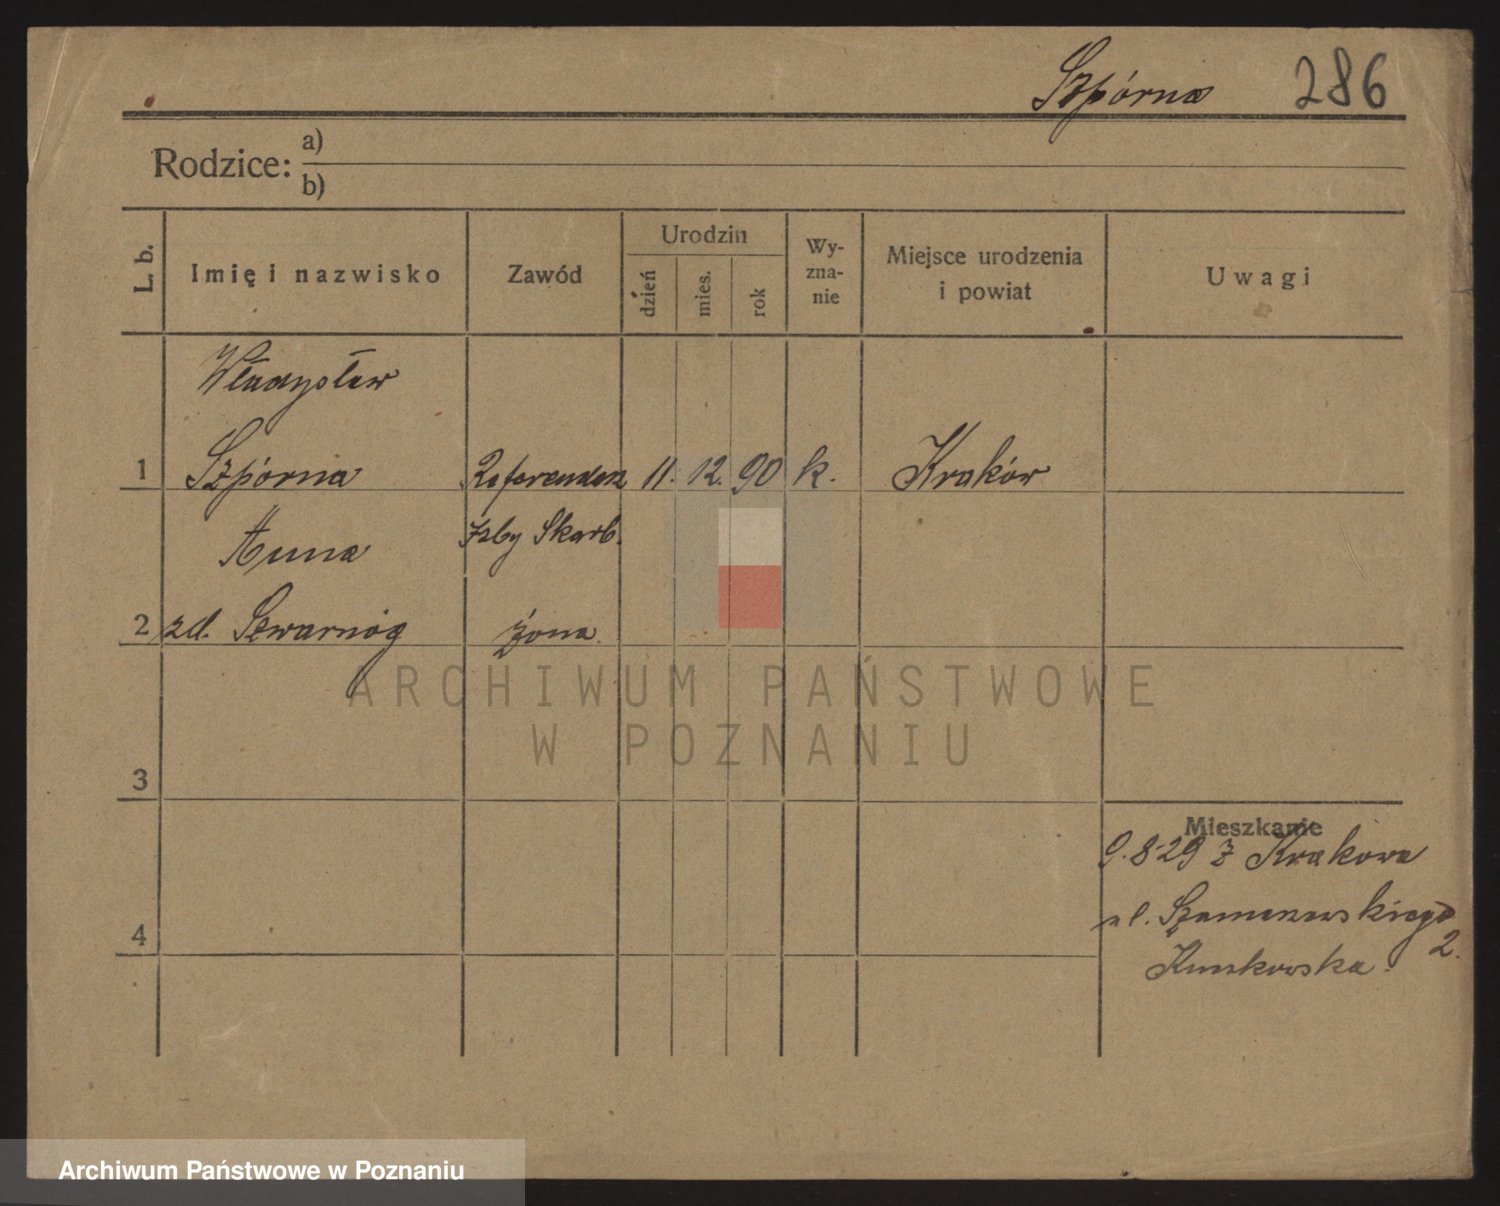 Szpórna 286
Rodzice: a)
b)
L. b. Imię i nazwisko Zawód Urodzin dzień mies. rok Wy-zna-nie Miejsce urodzenia i powiat Uwagi
Władysław
1 Szpórna Referendarz 11. 12. 90 k. Kraków
Anna Izby Skarb.
2 zd. Szwarnóg żona.
ARCHIWUM PAŃSTWOWE
W POZNANIU
3
Mieszkanie
9.8.29 z Krakowa
ul. Szamarzewskiego
4 2.
Archiwum Państwowe w Poznaniu